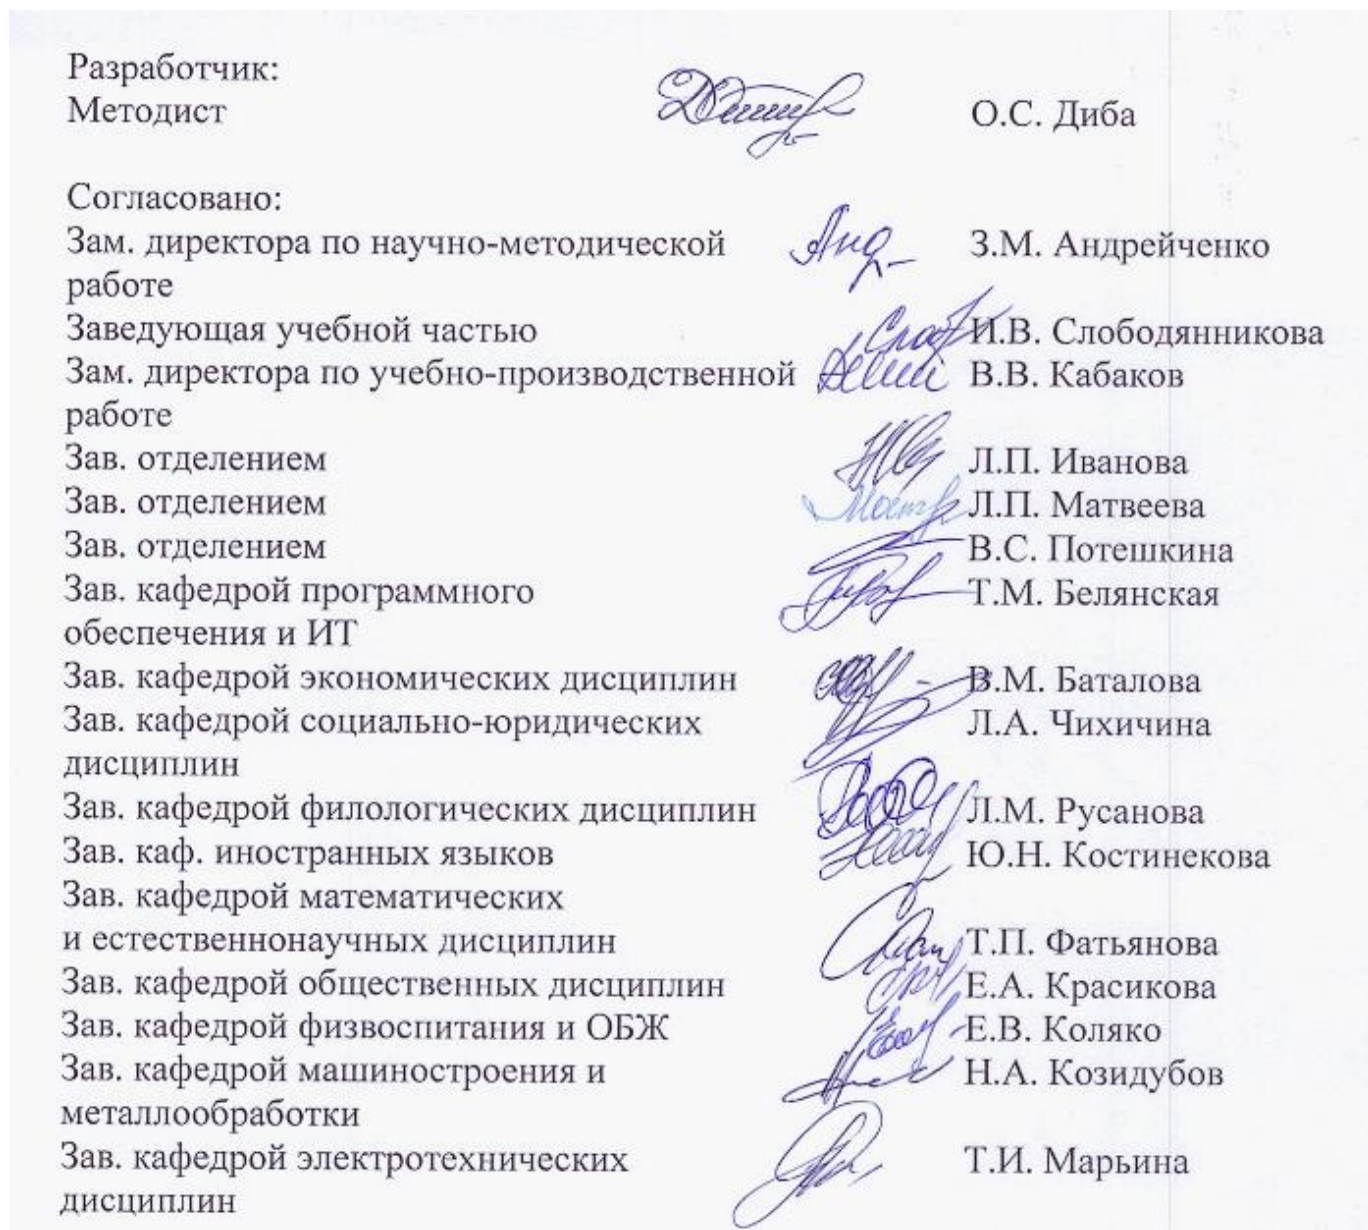 Разработчик:
Методист О.С. Диба
Согласовано:
Зам. директора по научно-методической З.М. Андрейченко
работе
Заведующая учебной частью И.В. Слободянникова
Зам. директора по учебно-производственной В.В. Кабаков
работе
Зав. отделением Л.П. Иванова
Зав. отделением Л.П. Матвеева
Зав. отделением В.С. Потешкина
Зав. кафедрой программного Т.М. Белянская
обеспечения и ИТ
Зав. кафедрой экономических дисциплин В.М. Баталова
Зав. кафедрой социально-юридических Л.А. Чихичина
дисциплин
Зав. кафедрой филологических дисциплин Л.М. Русанова
Зав. каф. иностранных языков Ю.Н. Костинекова
Зав. кафедрой математических
и естественнонаучных дисциплин Т.П. Фатьянова
Зав. кафедрой общественных дисциплин Е.А. Красикова
Зав. кафедрой физвоспитания и ОБЖ Е.В. Коляко
Зав. кафедрой машиностроения и Н.А. Козидубов
металлообработки
Зав. кафедрой электротехнических Т.И. Марьина
дисциплин